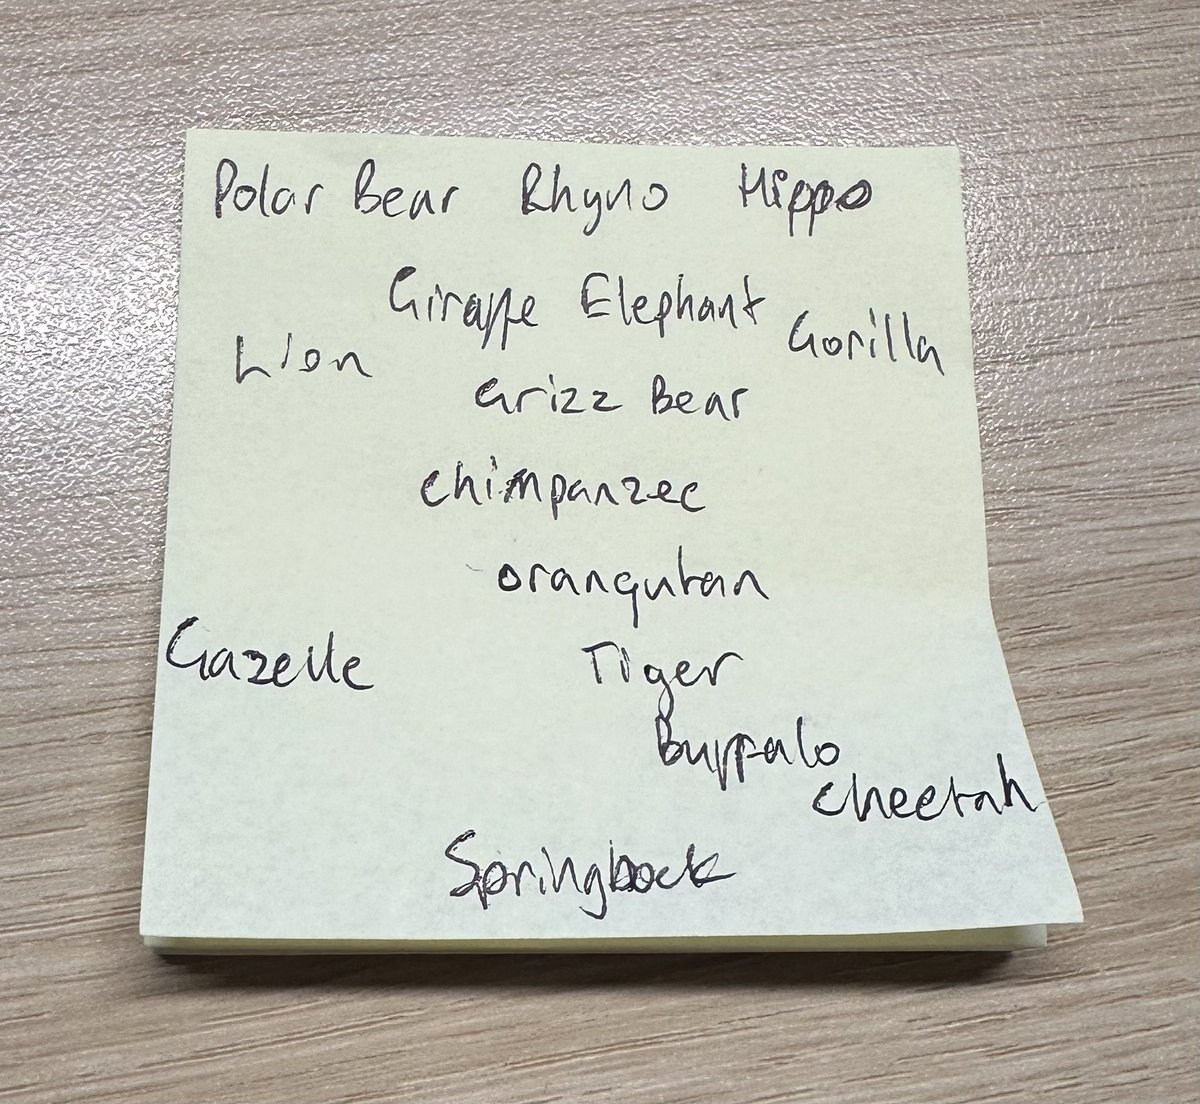 Polar Bear Rhyno Hippo
Giraffe Elephant
Lion Gorilla
Grizz Bear
chimpanzee
orangutan
Gazelle Tiger
Buffalo
cheetah
Springbock